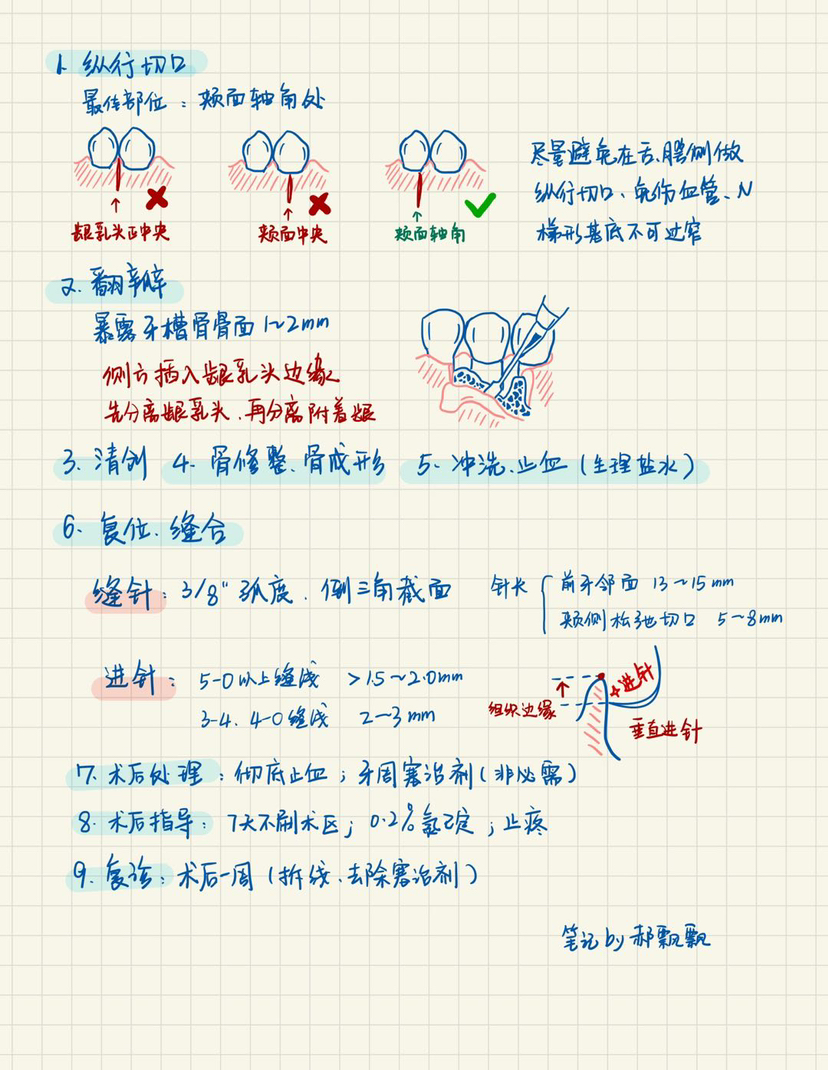 1. 纵行切口
最佳部位：颊面轴角处
龈乳头正中央
颊面中央
颊面轴角
尽量避免在舌、腭侧做
纵行切口、免伤血管、N
梯形基底不可过窄
2. 翻瓣
暴露牙槽骨骨面1~2mm
侧方插入龈乳头边缘
先分离龈乳头、再分离附着龈
3. 清创 4. 骨修整、骨成形 5. 冲洗、止血（生理盐水）
6. 复位、缝合
缝针：3/8" 弧度、倒三角截面
针长
前牙邻面 13~15mm
颊侧松弛切口 5~8mm
进针：5-0以上缝线 >1.5~2.0mm
3-4、4-0缝线 2~3mm
组织边缘
进针
垂直进针
7. 术后处理：彻底止血；牙周塞治剂（非必需）
8. 术后指导：7天不刷术区；0.2%氯己定；止疼
9. 复诊：术后一周（拆线、去除塞治剂）
笔记by郝飘飘